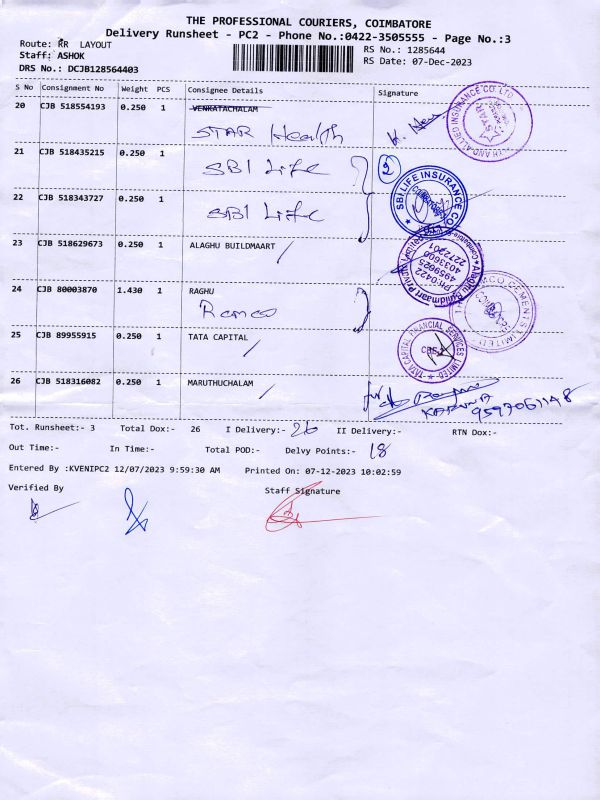 THE PROFESSIONAL COURIERS, COIMBATORE
Delivery Runsheet - PC2 - Phone No.:0422-3505555 - Page No.:3
Route: RR LAYOUT
RS No.: 1285644
Staff: ASHOK
RS Date: 07-Dec-2023
DRS No.: DCJB128564403
S No Consignment No Weight PCS Consignee Details Signature
20 CJB 518554193 0.250 1 VENKATACHALAM
STAR Health
21 CJB 518435215 0.250 1 SBI Life
2
22 CJB 518343727 0.250 1 SBI Life
SBI LIFE INSURANCE CO.
23 CJB 518629673 0.250 1 ALAGHU BUILDMAART
24 CJB 80003870 1.430 1 RAGHU
Ramco
25 CJB 89955915 0.250 1 TATA CAPITAL
TATA CAPITAL FINANCIAL SERVICES LIMITED
26 CJB 518316082 0.250 1 MARUTHUCHALAM
KARUNA
9597061148
Tot. Runsheet:- 3 Total Dox:- 26 I Delivery:- 26 II Delivery:- RTN Dox:-
Out Time:- In Time:- Total POD:- Delvy Points:- 18
Entered By :KVENIPC2 12/07/2023 9:59:30 AM Printed On: 07-12-2023 10:02:59
Verified By Staff Signature